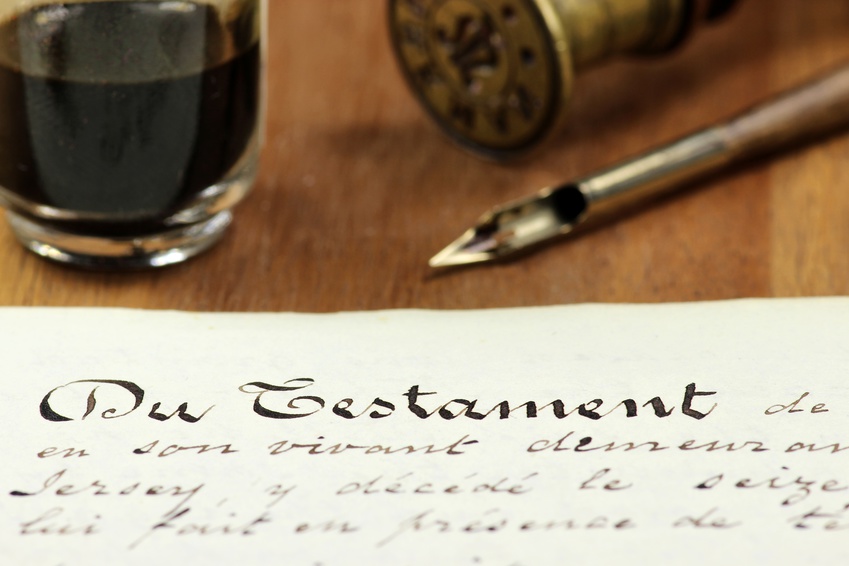 Du Testament de
en son vivant demeuran
Jersey y décédé le seize
lui fait en présence de té